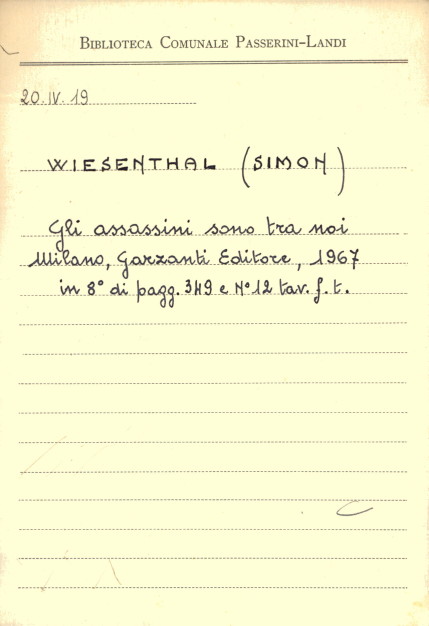 BIBLIOTECA COMUNALE PASSERINI-LANDI
20.IV.19
WIESENTHAL (SIMON)
Gli assassini sono tra noi
Milano, Garzanti Editore, 1967
in 8° di pagg. 349 e N° 12 tav. f. t.